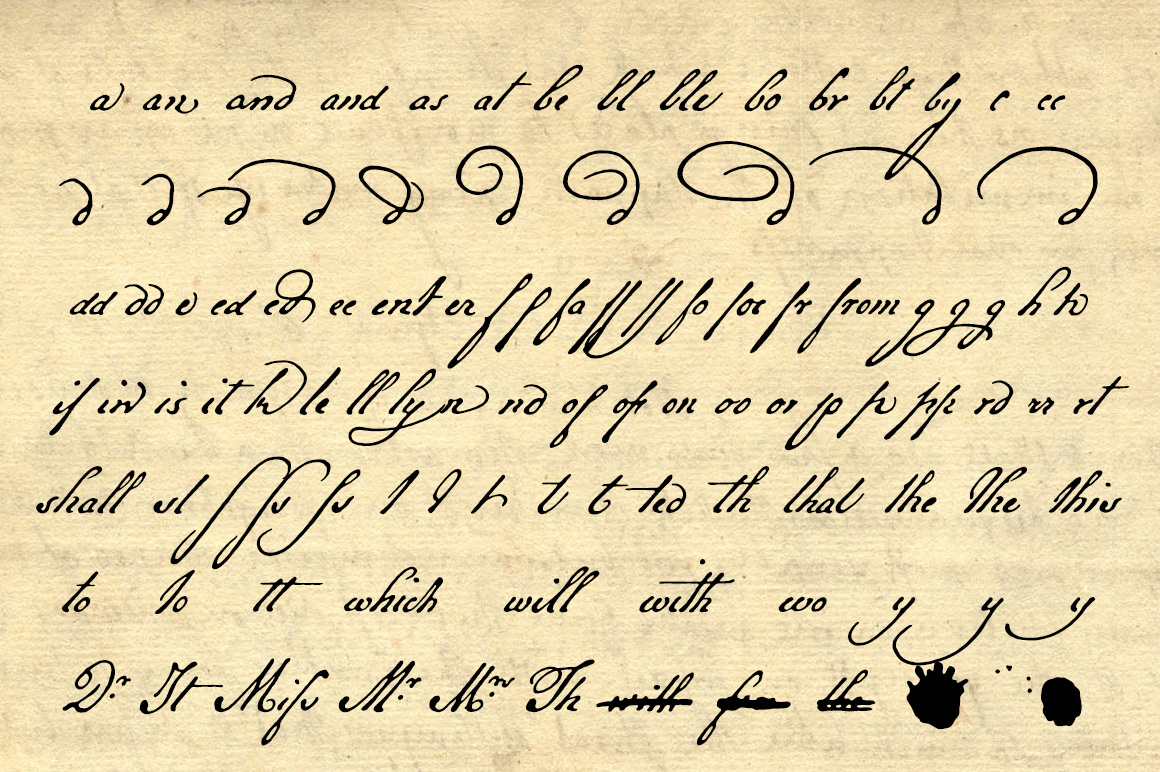 a an and and as at be bl ble bo br bt by c cc
d d d d d d d d d d
dd dd e ed ed ee ent er f f fa ff ff fo for fr from g g g h h
if in is it k le ll ly n nd of of on oo or p p pp rd rr rt
shall sl ſ ſs ſs t t t t t ted th that the the this
to to tt which will with wo y y y
Dr It Miſs Mr Mrs Th with for the